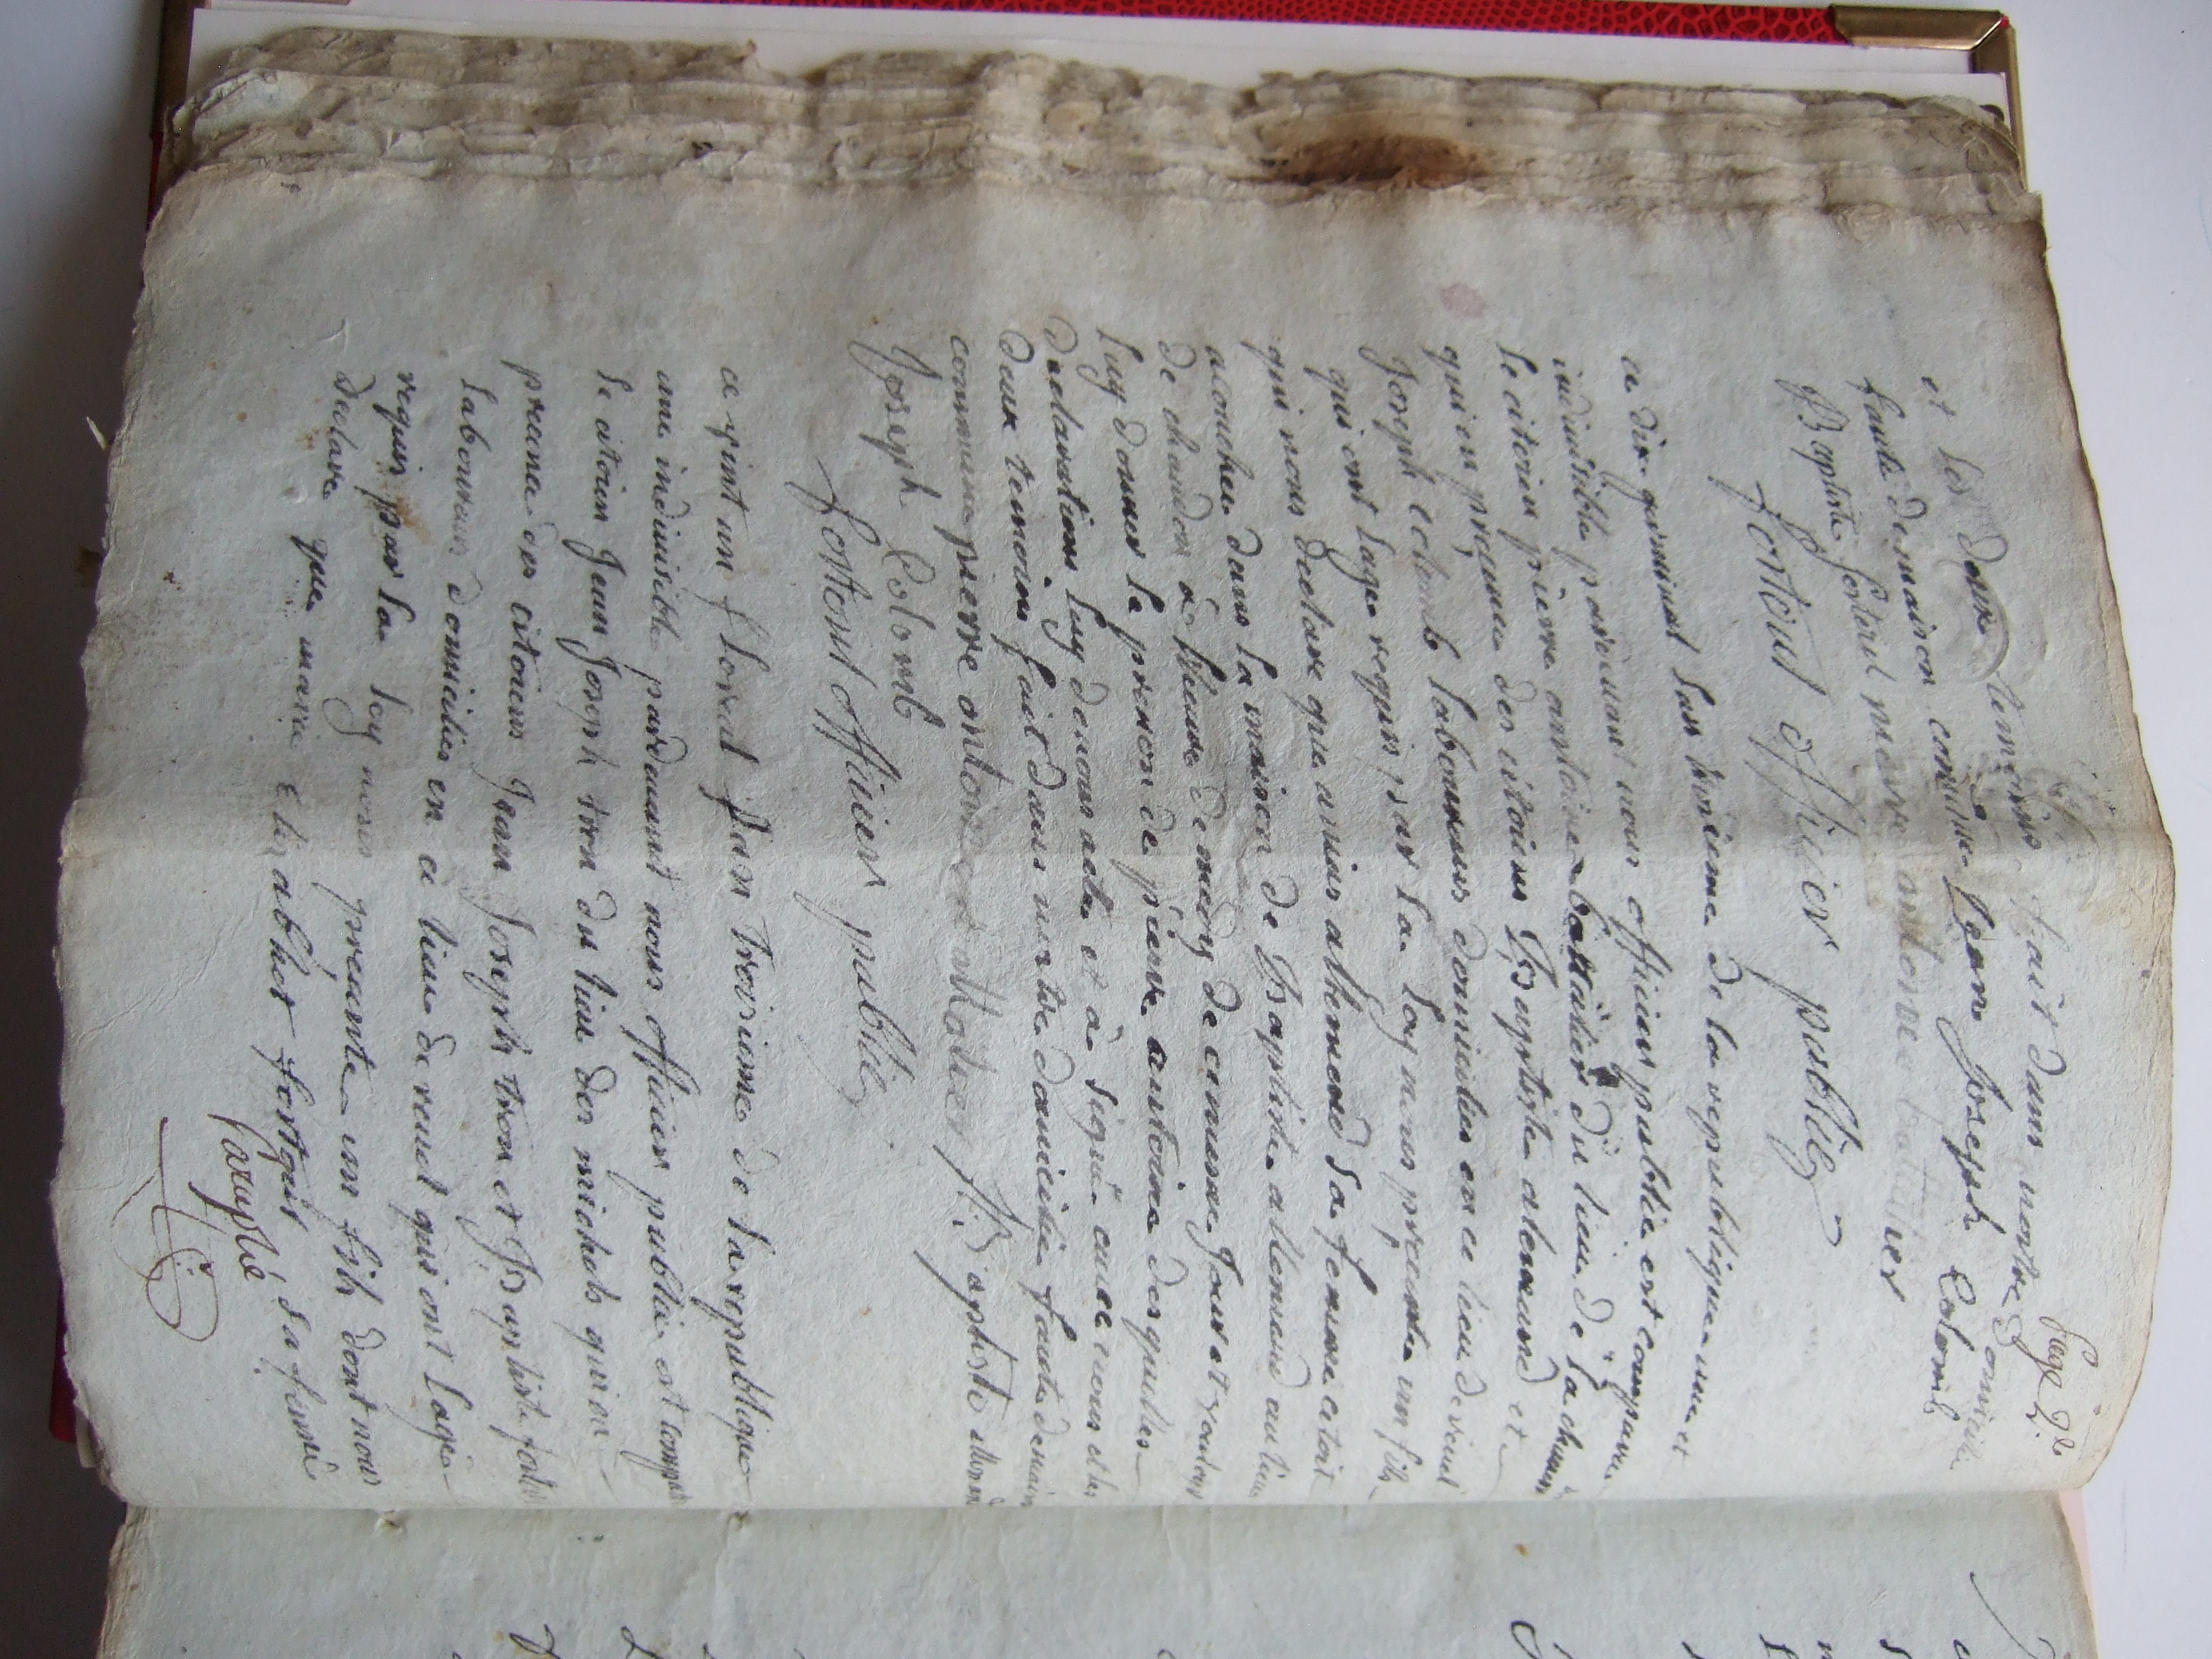 page 2
et les deux temoins fait dans nostre domicille
faute de maison comune jean joseph Colomb
Baptiste fortoul pierre antoine battailler
fortoul officier publicq
ce dix germinal l'an troisieme de la republique une et
indivisible pardevant nous officier public est comparu
le citoien pierre antoine battailler du lieu de la
qui en presence des citoiens Baptiste alemand et
joseph colomb laboureurs domiciliés en ce lieu de
qui ont l'age requis par la loy nous presente un fils
qui nous declare que anne allemand sa femme etoit
acouchee dans la maison de Baptiste allemand au lieu
de chaudon a l'heure de midy de ce meme jour et voulant
luy donner le prenom de pierre antoine desquelles
declarations luy avons acte et a signé avec nous et les
deux temoins fait dans nostre domicille faute de maison
commune pierre antoine battailler Baptiste
joseph Colomb
fortoul officier publicq
ce vint un floreal l'an troisieme de la republique
une indivisible pardevant nous officier public est comparu
le citoien jean joseph tron du lieu des michels qui en
presence des citoiens jean joseph tron et Baptiste fortoul
laboureurs domiciliés en ce lieu de qui ont l'age
requis par la loy nous presente un fils dont nous
declare que marie elisabhet sa femme
paraphé